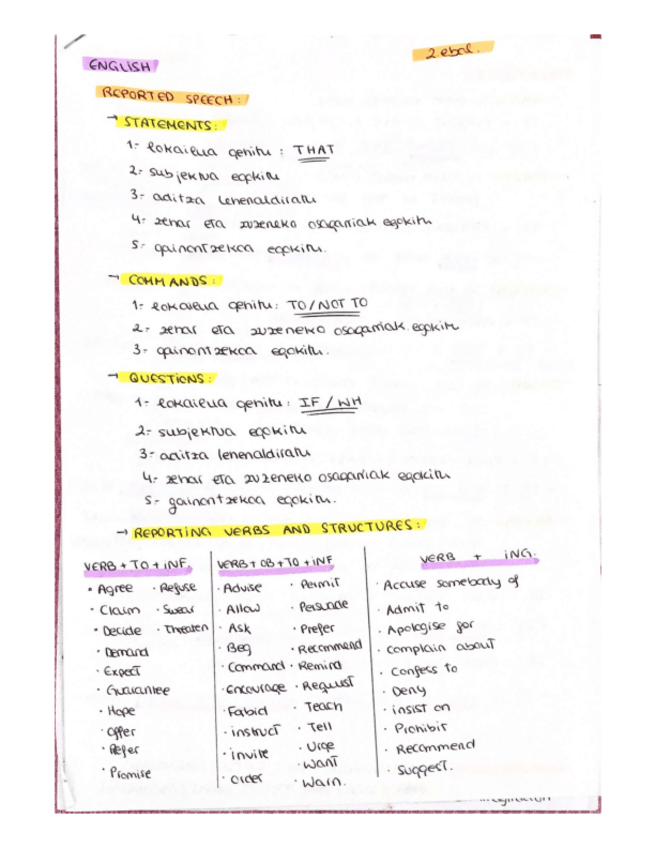 2 ebal.
ENGLISH
REPORTED SPEECH:
→ STATEMENTS:
1- lokailua gehitu : THAT
2- subjektua egokitu
3- aditza lehenaldiratu
4- zehar eta zuzeneko osagarriak egokitu
5- gainontzekoa egokitu.
→ COMMANDS:
1- lokailua gehitu: TO/NOT TO
2- zehar eta zuzeneko osagarriak egokitu
3- gainontzekoa egokitu.
→ QUESTIONS:
1- lokailua gehitu: IF / WH
2- subjektua egokitu
3- aditza lehenaldiratu
4- zehar eta zuzeneko osagarriak egokitu
5- gainontzekoa egokitu.
→ REPORTING VERBS AND STRUCTURES:
VERB + TO + INF.
· Agree · Refuse
· Claim · Swear
· Decide · Threaten
· Demand
· Expect
· Guarantee
· Hope
· Offer
· Refer
· Promise
VERB + OB + TO + INF
· Advise · Permit
· Allow · Persuade
· Ask · Prefer
· Beg · Recommend
· Command · Remind
· Encourage · Request
· Fobid · Teach
· instruct · Tell
· invite · Urge
· Want
· Order · Warn.
VERB + ING.
· Accuse somebody of
· Admit to
· Apologise for
· Complain about
· Confess to
· Deny
· insist on
· Prohibit
· Recommend
· Suggest.